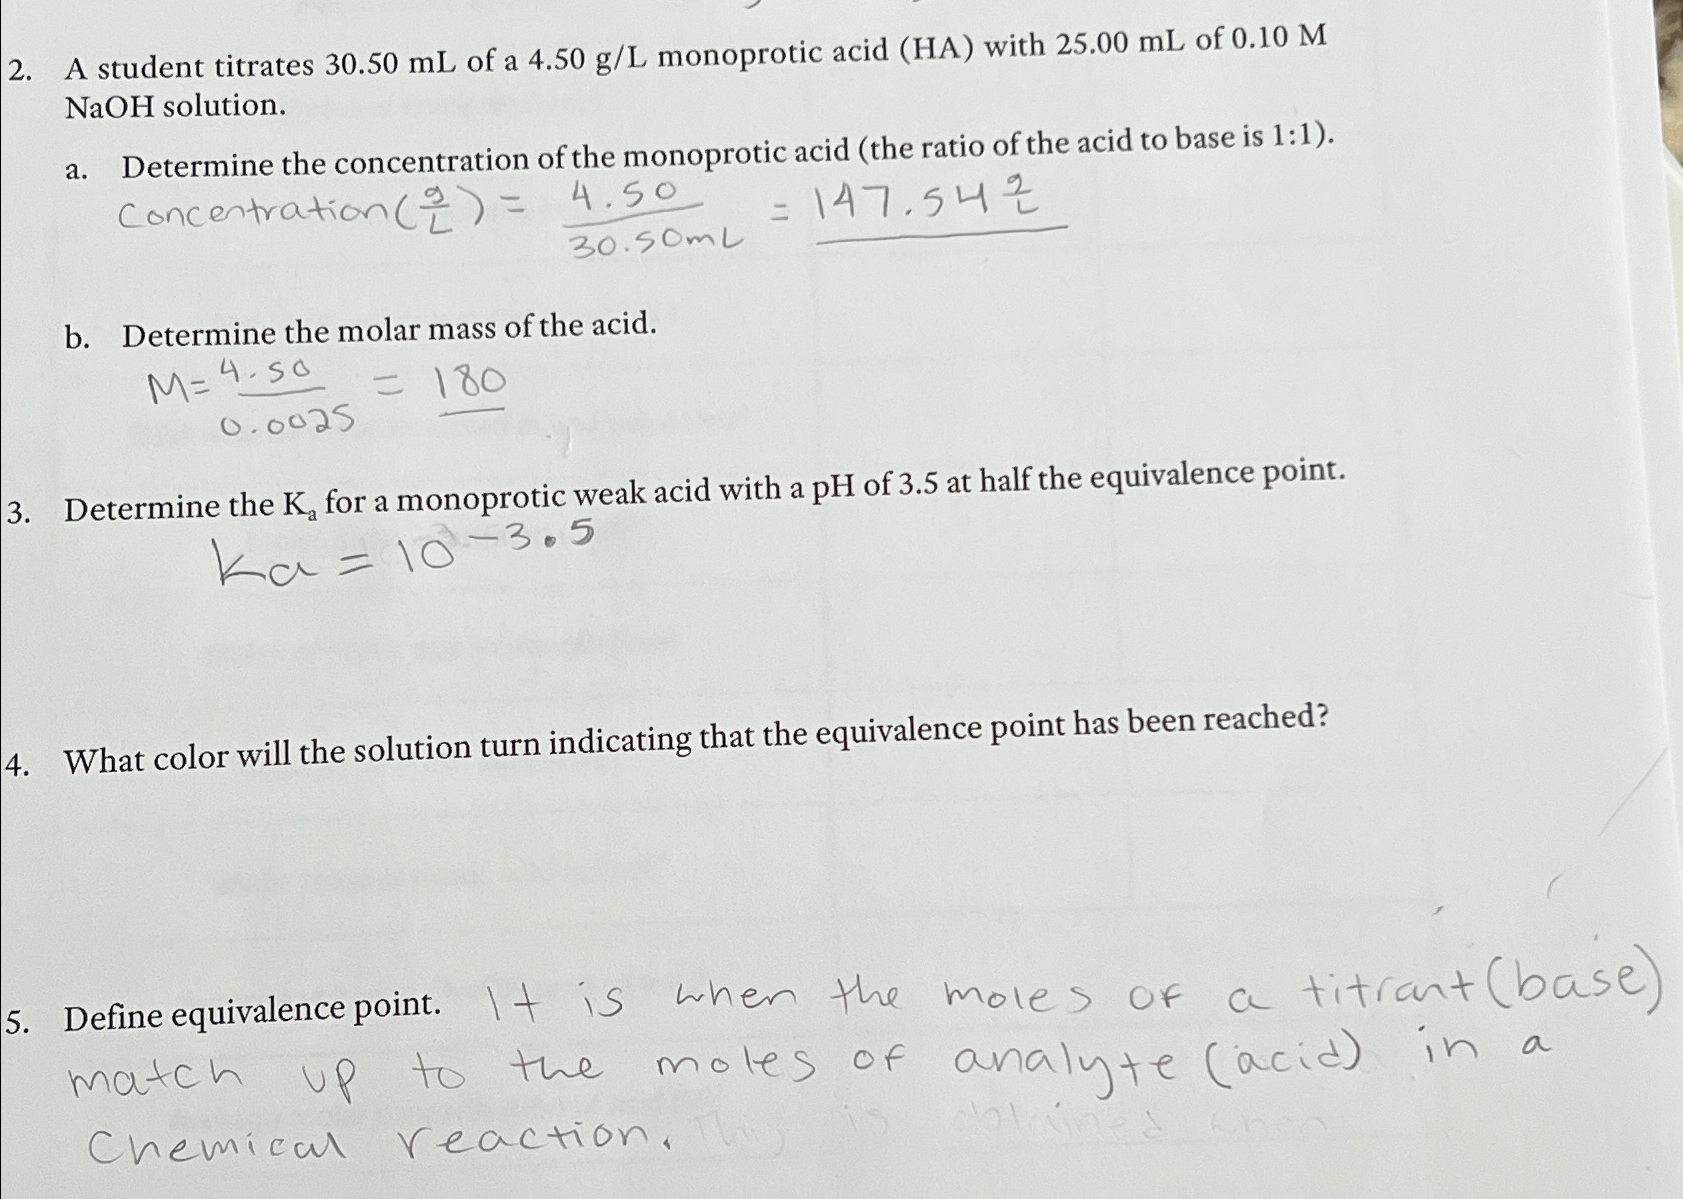 2. A student titrates 30.50 mL of a 4.50 g/L monoprotic acid (HA) with 25.00 mL of 0.10 M
NaOH solution.
a. Determine the concentration of the monoprotic acid (the ratio of the acid to base is 1:1).
Concentration (g/L) = 4.50/30.50mL = 147.54 g/L
b. Determine the molar mass of the acid.
M = 4.50/0.0025 = 180
3. Determine the Kₐ for a monoprotic weak acid with a pH of 3.5 at half the equivalence point.
Ka = 10^-3.5
4. What color will the solution turn indicating that the equivalence point has been reached?
5. Define equivalence point. It is when the moles of a titrant (base)
match up to the moles of analyte (acid) in a
Chemical reaction. This is obtained when